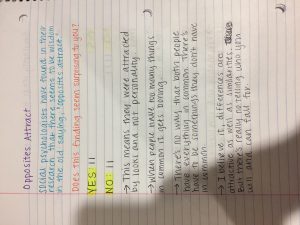 Opposites Attract
Social psychologists have found in their
research, that there seems to be wisdom
in the old saying, "opposites attract."
Does this finding seem surprising to you?
YES: II
NO: II
→ This means they were attracted
by looks and not personality.
→ When people have too many things
in common it gets boring.
→ There's no way that both people
have everything in common. There's
have to be something they don't have
in common.
→ I believe it, differences are
attractive as well as similarities.
but there's really no telling who you
will and can fall for.